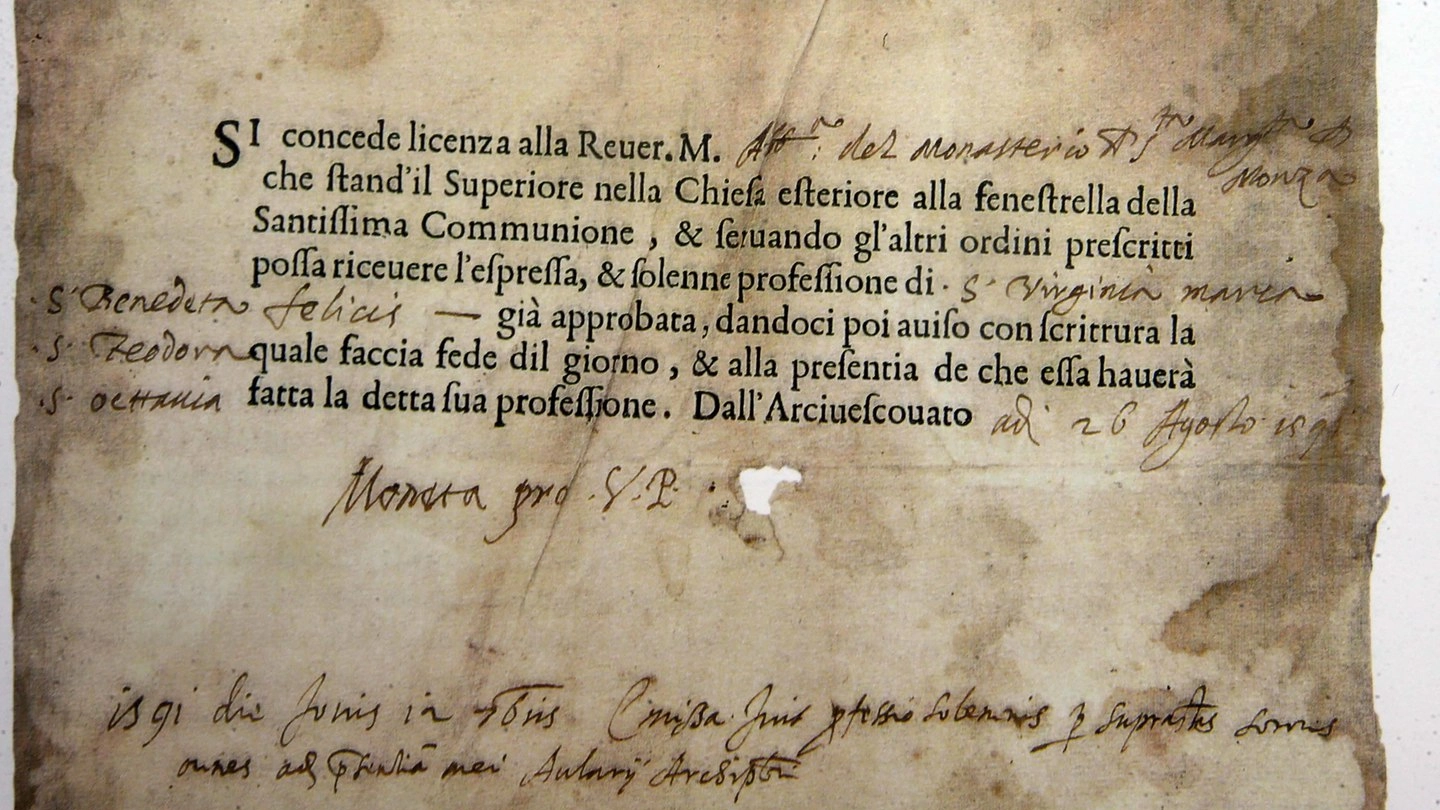 SI concede licenza alla Reuer. M. del Monasterio Monza
che ſtand'il Superiore nella Chieſa eſteriore alla feneſtrella della
Santiſſima Communione , & ſeruando gl'altri ordini preſcritti
poſſa riceuere l'eſpreſſa, & ſolenne profeſſione di . S. Virginia maria
S. Benedeta felicis — già approbata, dandoci poi auiſo con ſcrittura la
S. Teodora quale faccia fede dil giorno , & alla preſentia de che eſſa hauerà
S. ottauia fatta la detta ſua profeſſione. Dall'Arciueſcouato adi 26 Agosto 1591
Moneta pro .V.P.
1591 die Jouis 12 7bris Emissa fuit pfessio solemnis p suprastas sorores
omnes ad pntia mei Archipbri